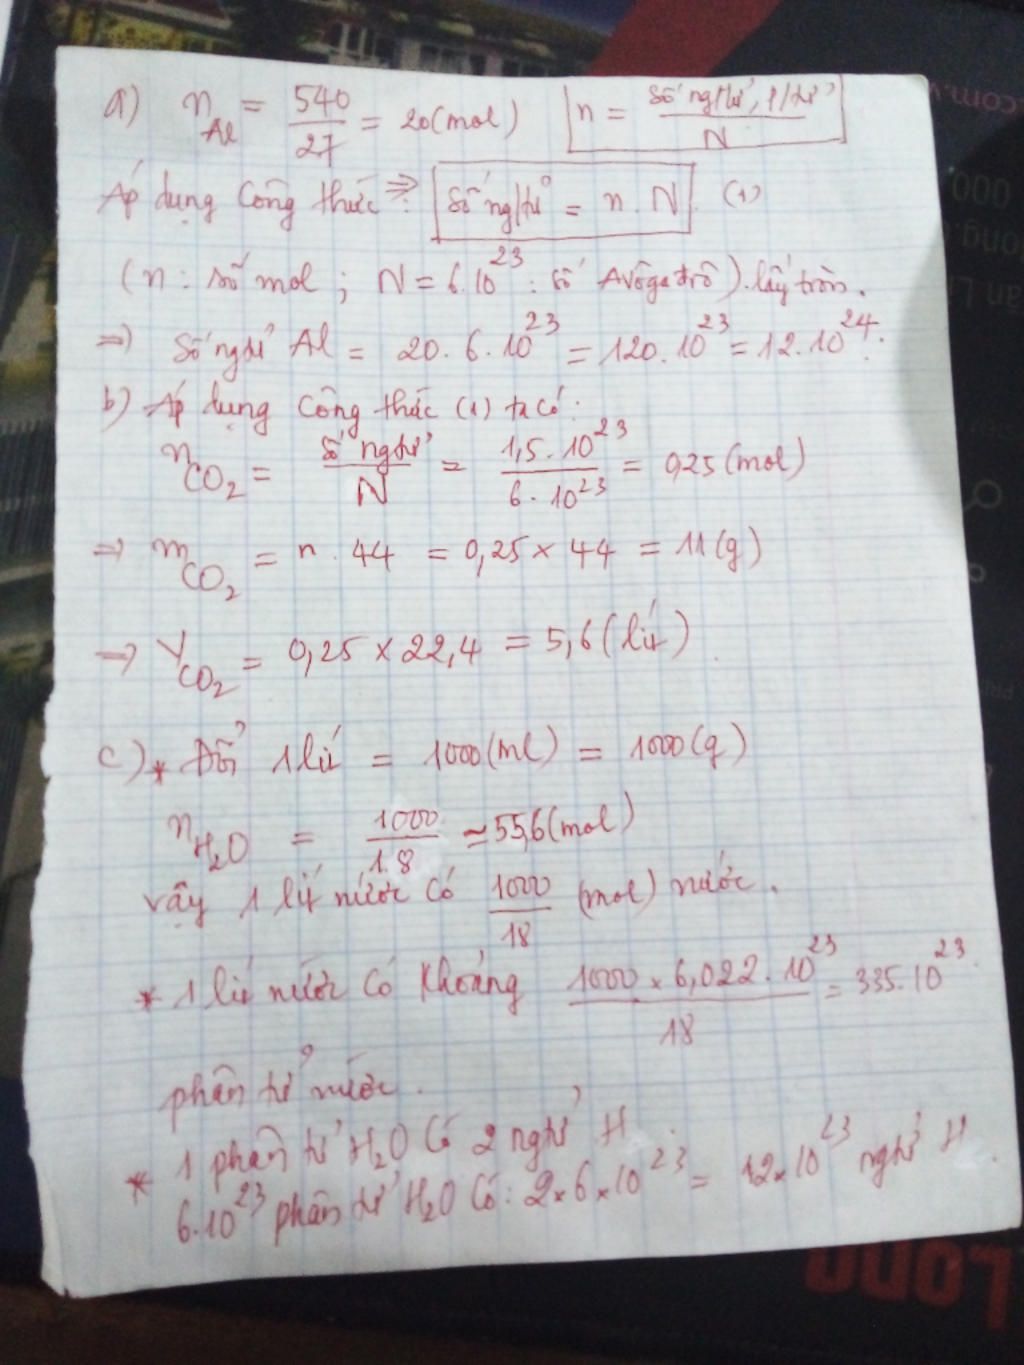 a) n Al = 540/27 = 20(mol) n = Số ng/tử, p/tử / N
Áp dụng Công thức ⇒: Số ng/tử = n . N (1)
(n : số mol ; N = 6.10^23 : số Avôgađrô) lấy tròn.
⇒ Số ngtử Al = 20. 6. 10^23 = 120. 10^23 = 12. 10^24.
b) Áp dụng Công thức (1) ta có :
n CO2 = Số ngtử / N = 1,5. 10^23 / 6. 10^23 = 0,25 (mol)
⇒ m CO2 = n . 44 = 0,25 × 44 = 11(g)
→ V CO2 = 0,25 × 22,4 = 5,6 (lít)
c) * Đổi 1 lít = 1000(ml) = 1000(g)
n H2O = 1000/18 ≃ 55,6(mol)
Vậy 1 lít nước có 1000/18 (mol) nước.
* 1 lít nước có khoảng 1000 × 6,022. 10^23 / 18 = 335. 10^23
phân tử nước.
* 1 phân tử H2O có 2 ngtử H
6. 10^23 phân tử H2O có : 2 × 6 × 10^23 = 12 × 10^23 ngtử H.
LONG